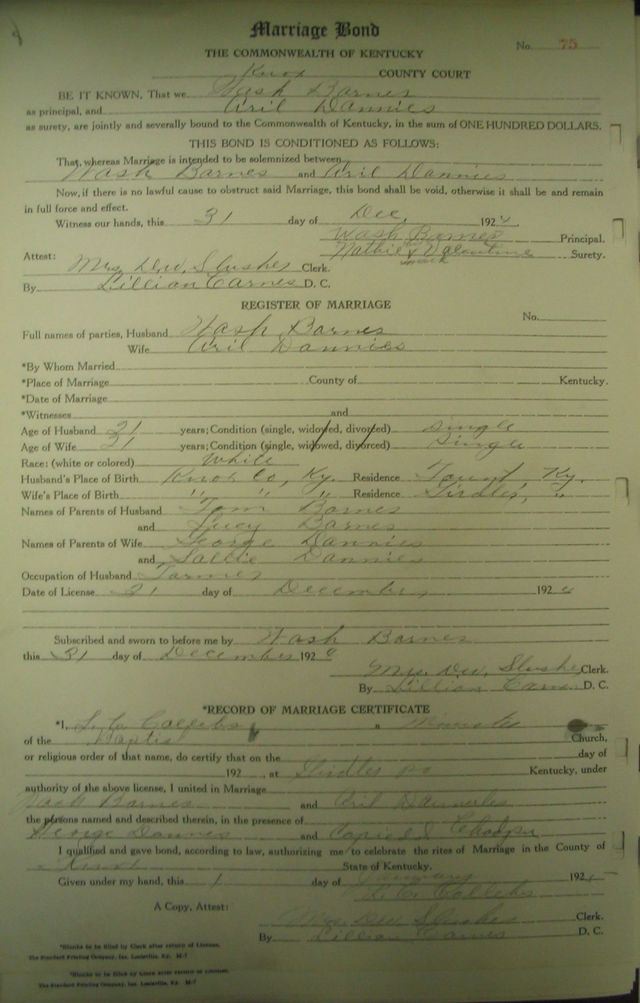 Marriage Bond
No. 75
THE COMMONWEALTH OF KENTUCKY
Knox COUNTY COURT
BE IT KNOWN, That we Wash Barnes
as principal, and Aril Dannies
as surety, are jointly and severally bound to the Commonwealth of Kentucky, in the sum of ONE HUNDRED DOLLARS.
THIS BOND IS CONDITIONED AS FOLLOWS:
That, whereas Marriage is intended to be solemnized between
Wash Barnes and Aril Dannies
Now, if there is no lawful cause to obstruct said Marriage, this bond shall be void, otherwise it shall be and remain
in full force and effect.
Witness our hands, this 31 day of Dec, 192
Wash Barnes Principal.
Valentine Surety.
Attest: Mrs. Dw. Slusher Clerk.
By Lillian Carnes D. C.
REGISTER OF MARRIAGE
No.
Full names of parties, Husband Wash Barnes
Wife Aril Dannies
*By Whom Married
*Place of Marriage County of Kentucky.
*Date of Marriage
*Witnesses and
Age of Husband 21 years; Condition (single, widowed, divorced) Single
Age of Wife 21 years; Condition (single, widowed, divorced) Single
Race: (white or colored) White
Husband's Place of Birth Knox Co, Ky. Residence Ky.
Wife's Place of Birth " " " Residence Girdler, "
Names of Parents of Husband Tom Barnes
and Lucy Barnes
Names of Parents of Wife George Dannies
and Sallie Dannies
Occupation of Husband Farmer
Date of License 31 day of December, 192
Subscribed and sworn to before me by Wash Barnes
this 31 day of December 192
Mrs. Dw. Slusher Clerk.
By Lillian Carnes D. C.
*RECORD OF MARRIAGE CERTIFICATE
*I, a Minister
of the Baptist Church,
or religious order of that name, do certify that on the day of
192 , at Girdler Kentucky, under
authority of the above license, I united in Marriage
Wash Barnes and Aril
the persons named and described therein, in the presence of
George Dannies and
I qualified and gave bond, according to law, authorizing me to celebrate the rites of Marriage in the County of
Knox State of Kentucky.
Given under my hand, this 1 day of January 192
A Copy, Attest:
Mrs Dw Slusher Clerk.
By Lillian Carnes D. C.
*Blanks to be filled by Clerk after return of License.
The Standard Printing Company, Inc. Louisville, Ky. M-7
*Blanks to be filed by Clerk after return of License.
The Standard Printing Company, Inc. Louisville, Ky. M-7